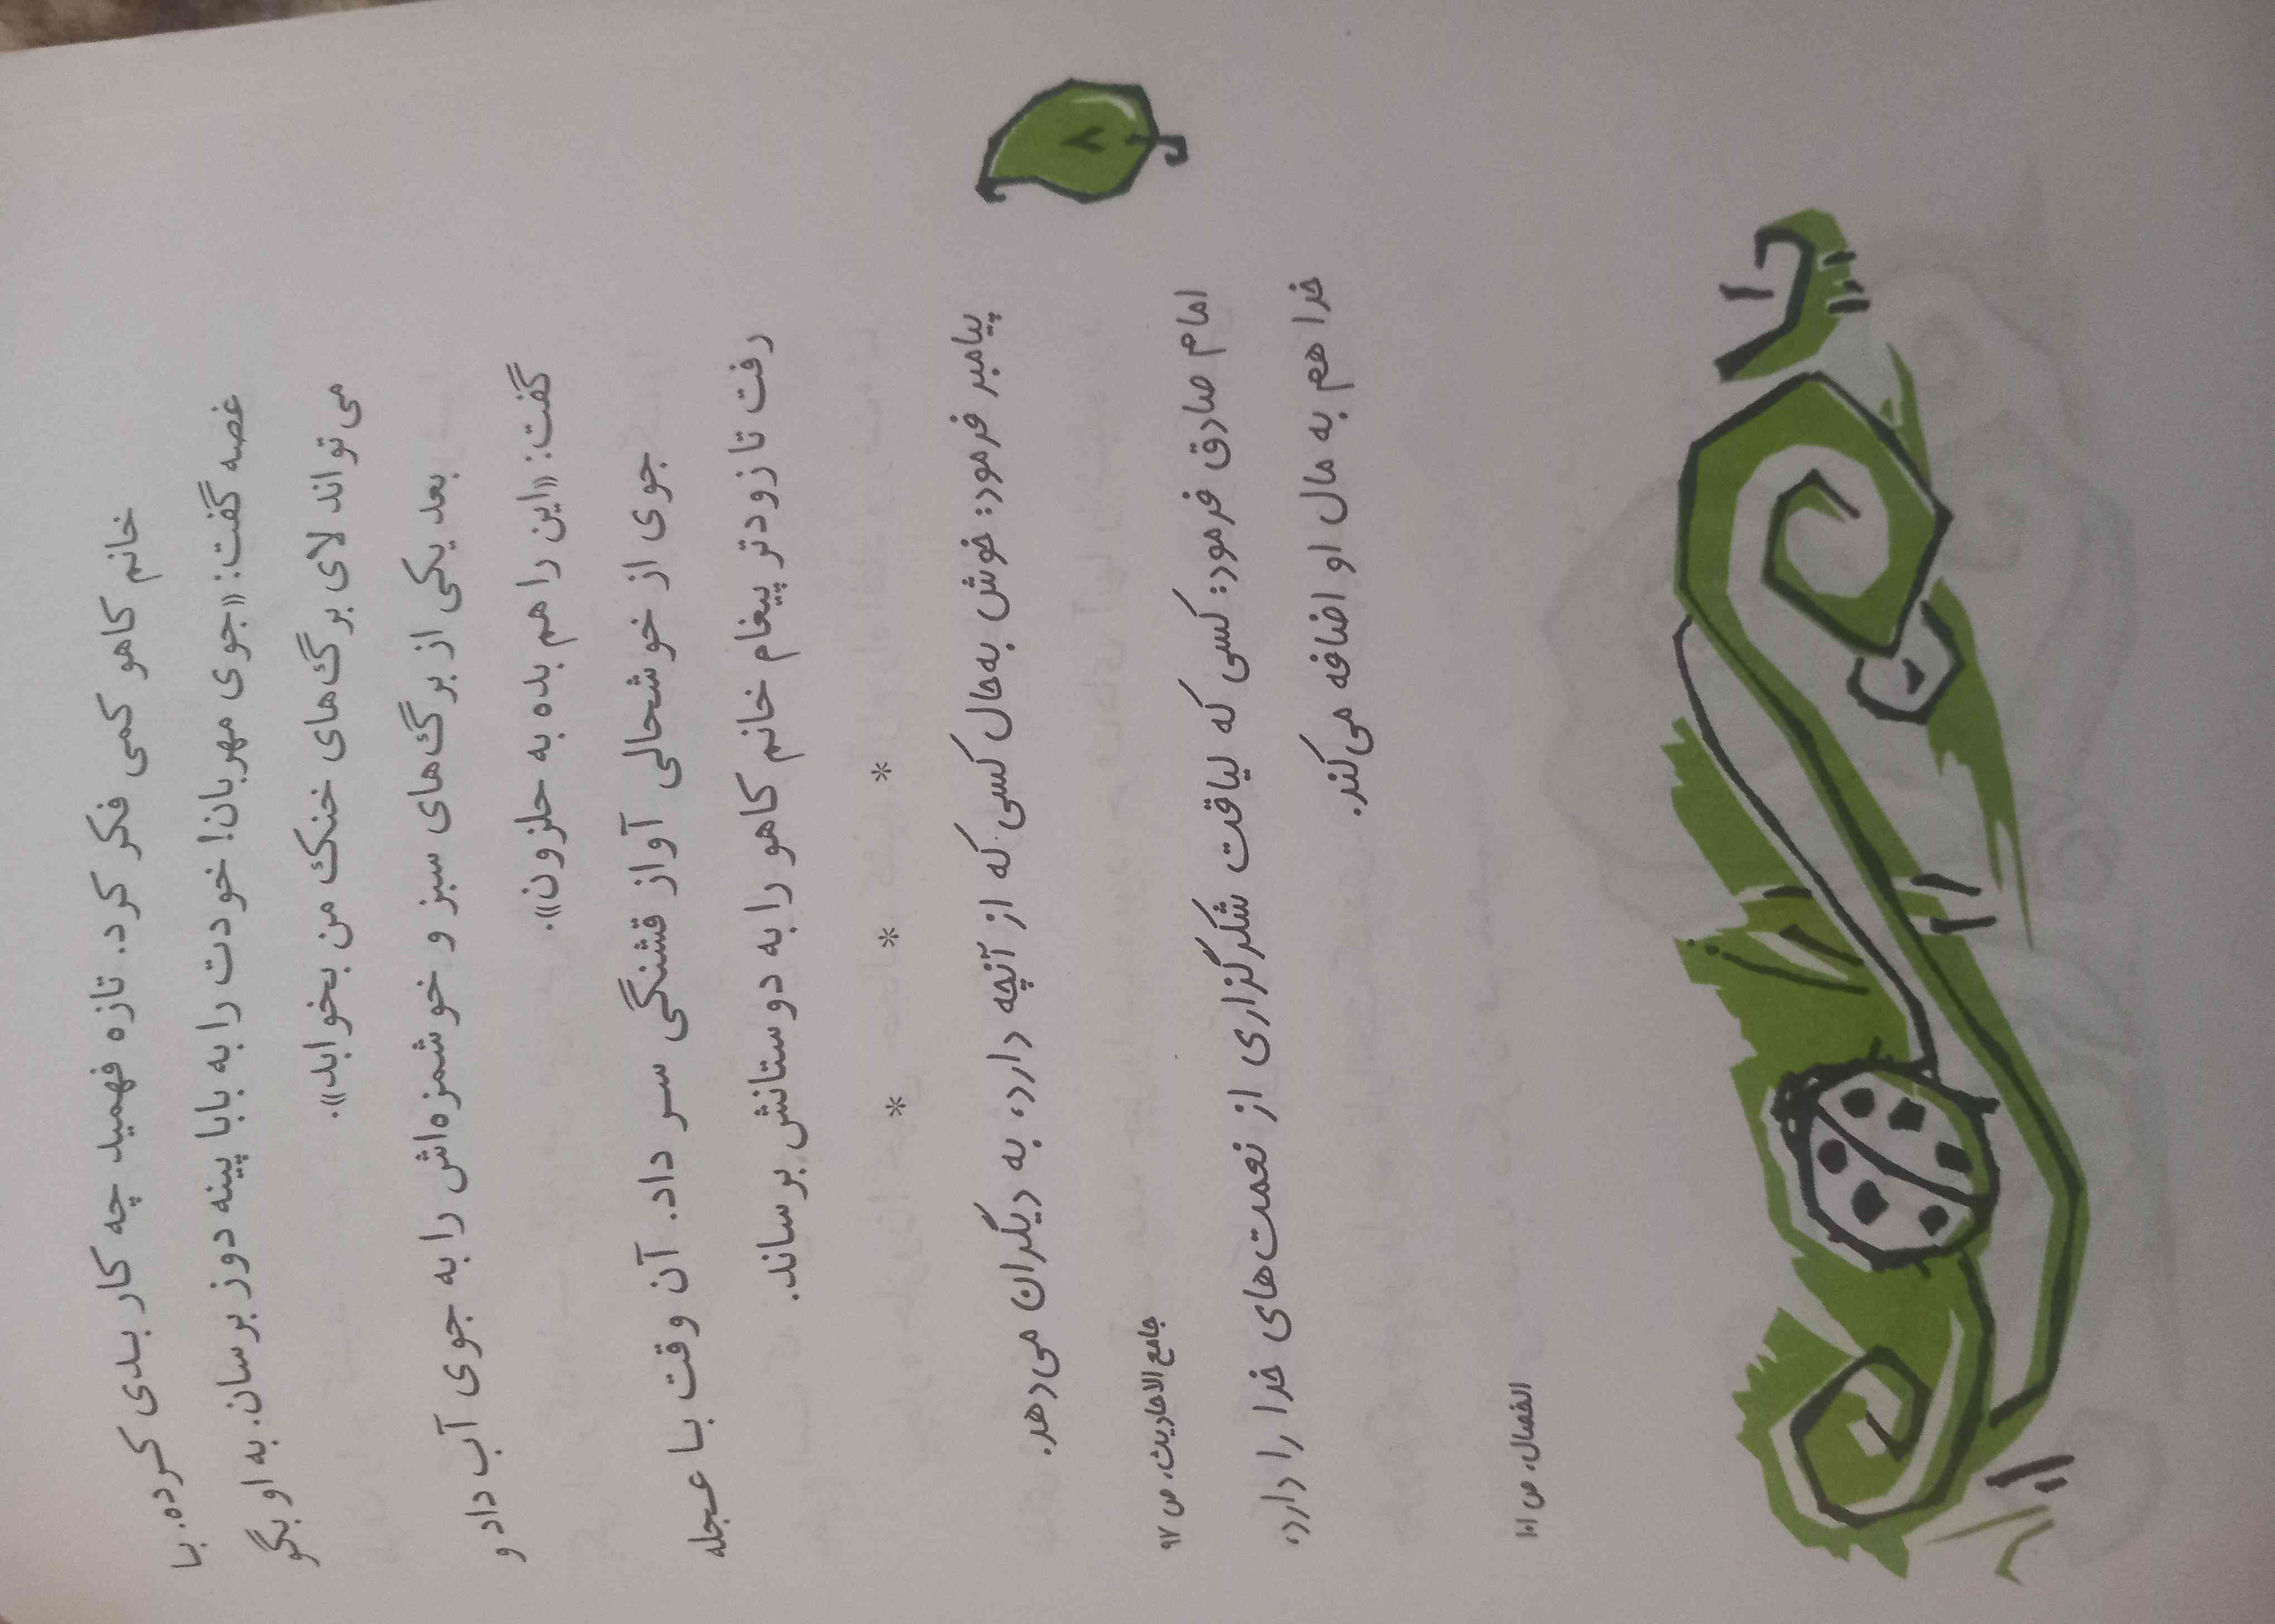 خانم کاهو کمی فکر کرد. تازه فهمید چه کار بدی کرده. با
غصه گفت: «جوی مهربان! خودت را به بابا پینه دوز برسان. به او بگو
می تواند لای برگ‌های خنک من بخوابد».
بعد یکی از برگ‌های سبز و خوشمزه‌اش را به جوی آب داد و
گفت: «این را هم بده به حلزون».
جوی از خوشحالی آواز قشنگی سر داد. آن وقت با عجله
رفت تا زودتر پیغام خانم کاهو را به دوستانش برساند.
* * *
پیامبر فرمود: خوش به‌حال کسی که از آنچه دارد، به دیگران می‌دهد.
جامع الاحادیث، ص ۹۷
امام صادق فرمود: کسی که لیاقت شکرگزاری از نعمت‌های خدا را دارد،
خدا هم به مال او اضافه می‌کند.
الخصال، ص ۱۰۱
۷